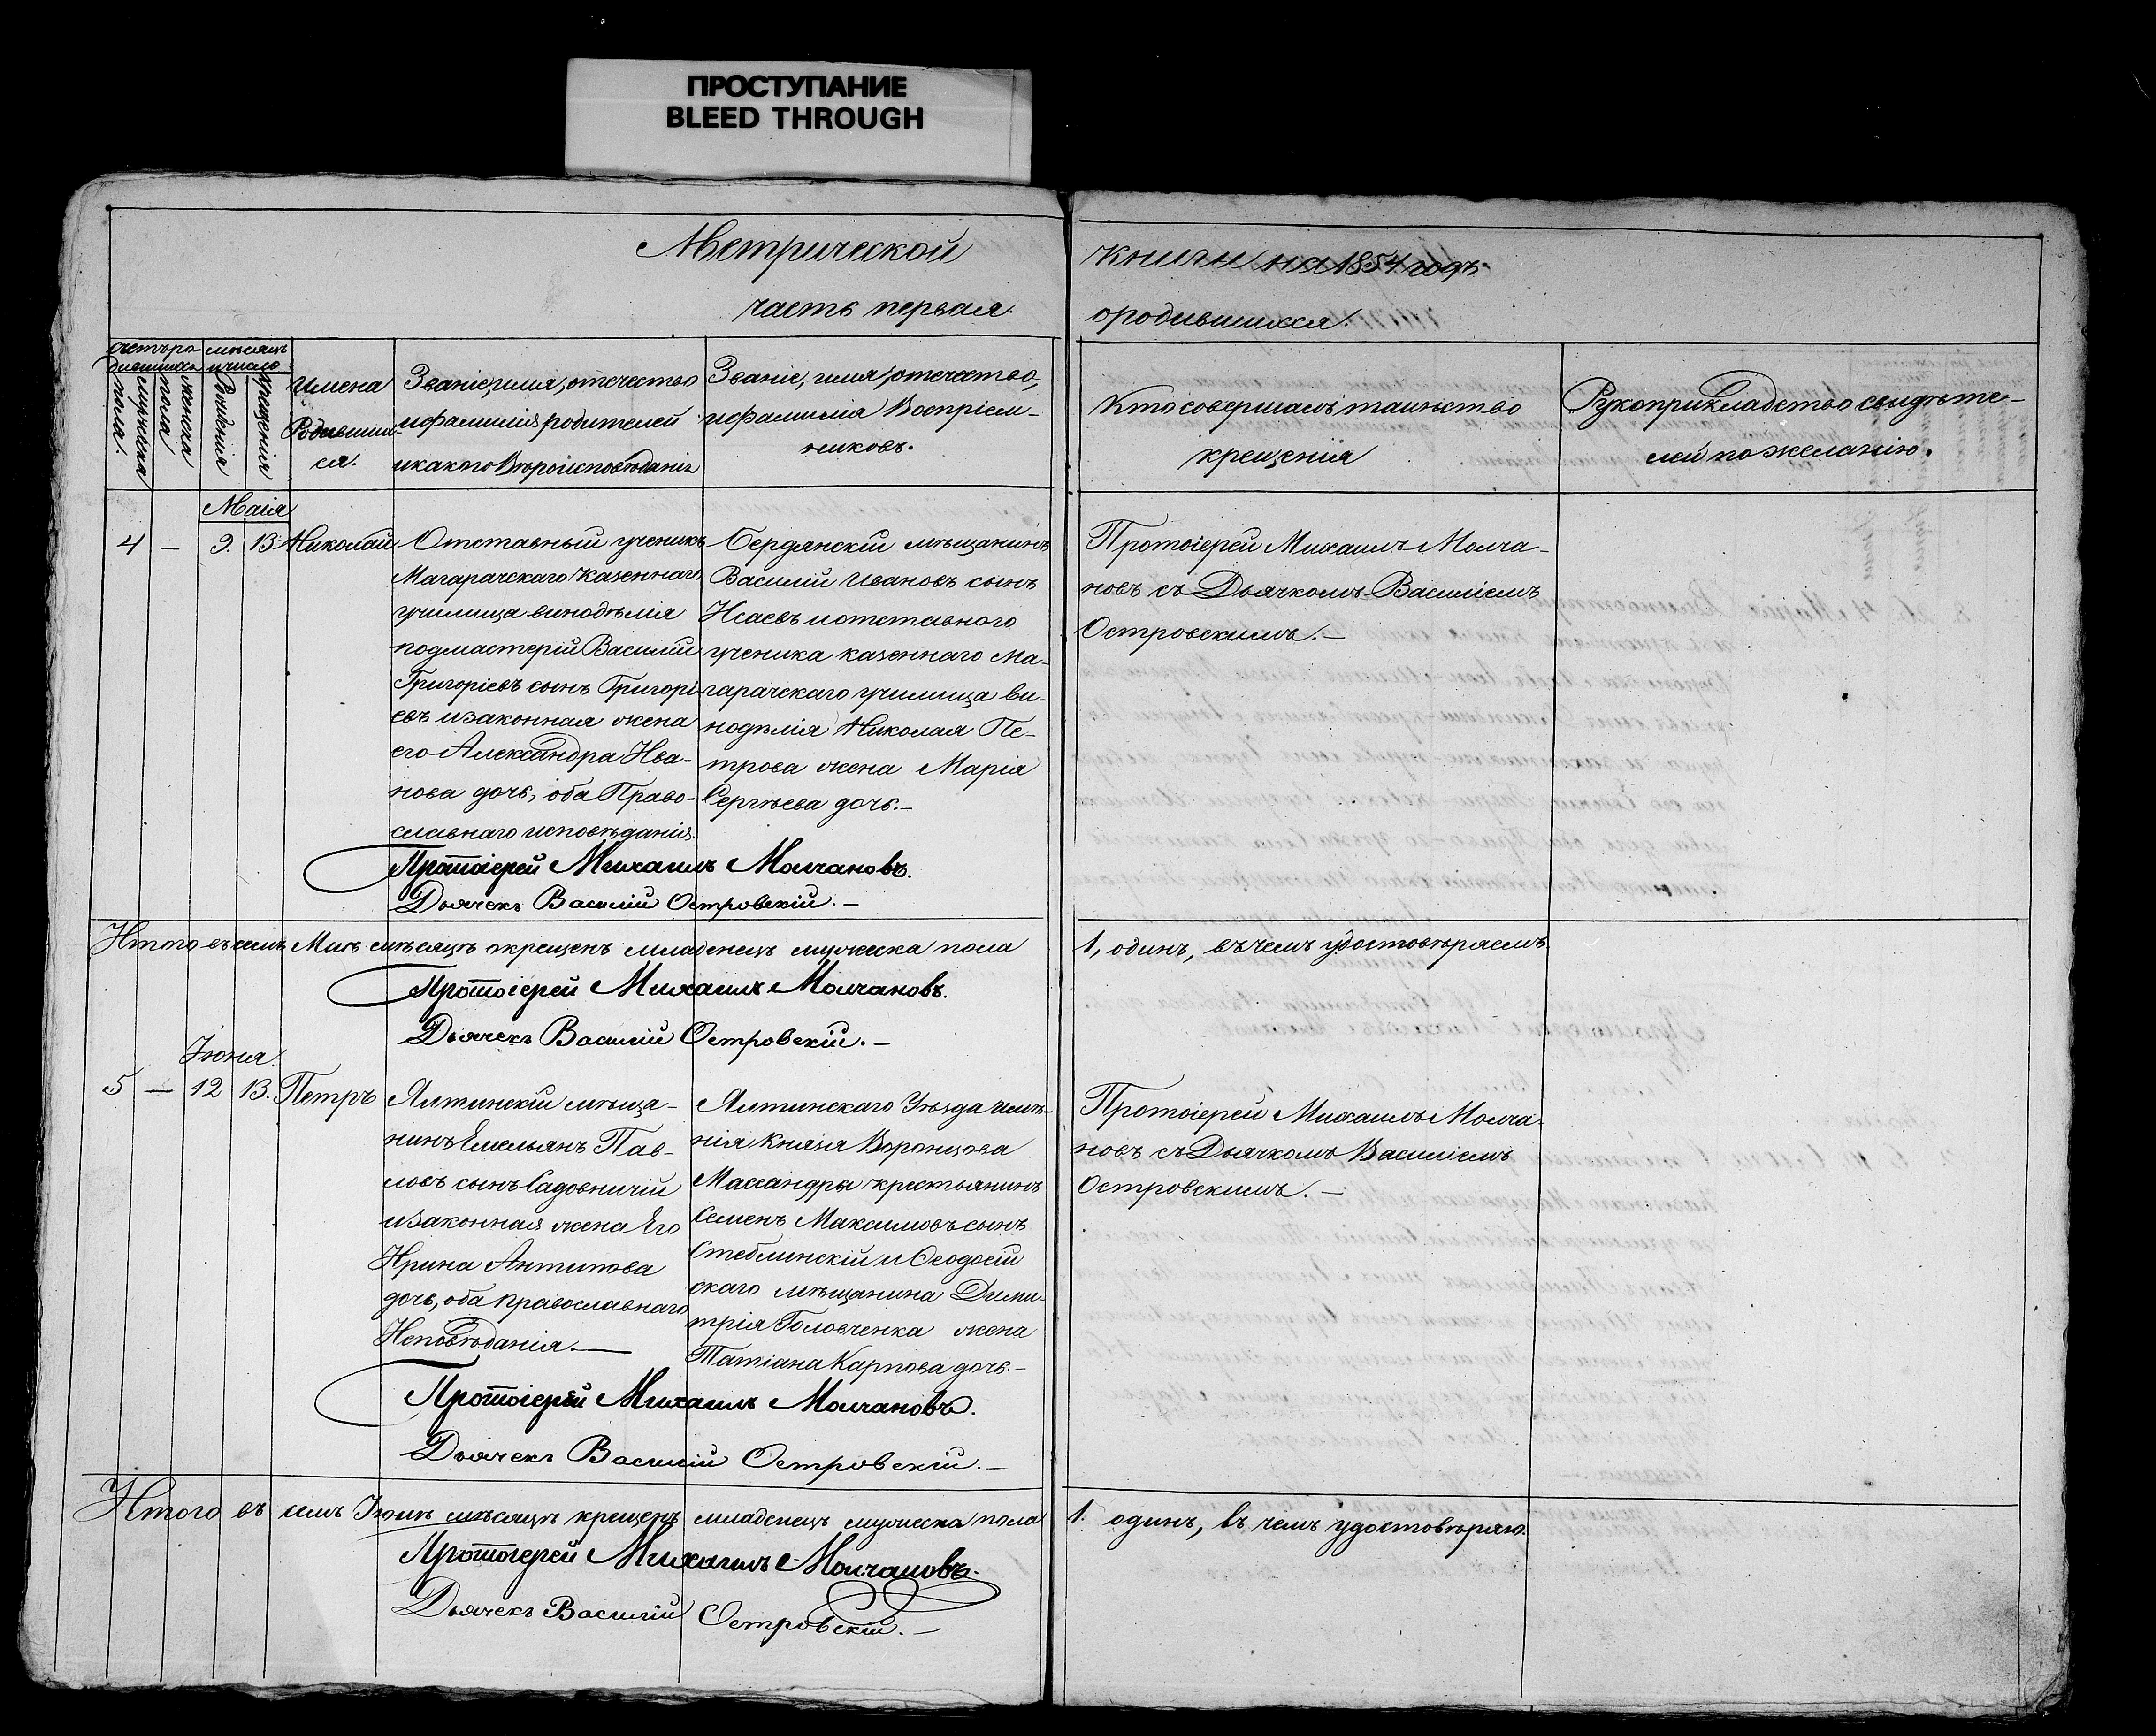 ПРОСТУПАНИЕ
BLEED THROUGH
Метрической
часть первая.
книги на 1854 годъ.
ородившихся.
счетъ ро-
дившихся
мѣсяцъ
ичисло
мужеска
пола.
женска
пола
Рожденія
крещенія
Имена
Родивших-
ся.
Званіе, имя, отечество
ифамилія родителей
икакого Вѣроисповѣданія
Званіе, имя, отечество,
ифамилія Воспріем-
никовъ.
Кто совершалъ таинство
крещенія
Рукоприкладство свидѣте-
лей по желанію.
Маія
4 — 9. 13. Николай
Отставный ученикъ
Магарачскаго казеннаго
училища винодѣлія
подмастерій Василій
Григоріевъ сынъ Григорі-
евъ изаконная жена
его Александра Ива-
нова дочь, оба Право-
славнаго исповѣданія.
Бердянскій мѣщанинъ
Василій Ивановъ сынъ
Исаевъ иотставного
ученика казеннаго Ма-
гарачскаго училища ви-
нодѣлія Николая Пе-
трова жена Марія
Сергѣева дочь.—
Протоіерей Михаилъ Молча-
новъ съ Дьячкомъ Василіемъ
Островскимъ.—
Протоіерей Михаилъ Молчановъ.
Дьячекъ Василій Островскій.—
Итого въ семъ Маѣ мѣсяцѣ крещенъ младенецъ мужеска пола
1, одинъ, въ чемъ удостовѣряемъ.
Протоіерей Михаилъ Молчановъ.
Дьячекъ Василій Островскій.—
Іюня.
5 — 12 13. Петръ
Ялтинскій мѣща-
нинъ Емельянъ Пав-
ловъ сынъ Садовничій
изаконная жена Его
Ирина Антипова
дочь, оба православнаго
Исповѣданія.—
Ялтинскаго Уѣзда имѣ-
нія Князя Воронцова
Массандры крестьянинъ
Семенъ Максимовъ сынъ
Стеблинскій и Ѳеодосій
скаго мѣщанина Дими-
трія Головченка жена
Татіана Карпова дочь.—
Протоіерей Михаилъ Молча-
новъ съ Дьячкомъ Василіемъ
Островскимъ.—
Протоіерей Михаилъ Молчановъ.
Дьячекъ Василій Островскій.—
Итого въ семъ Іюнѣ мѣсяцѣ крещенъ младенецъ мужеска пола
1. одинъ, въ чемъ удостовѣряю.
Протоіерей Михаилъ Молчановъ.
Дьячекъ Василій Островскій.—